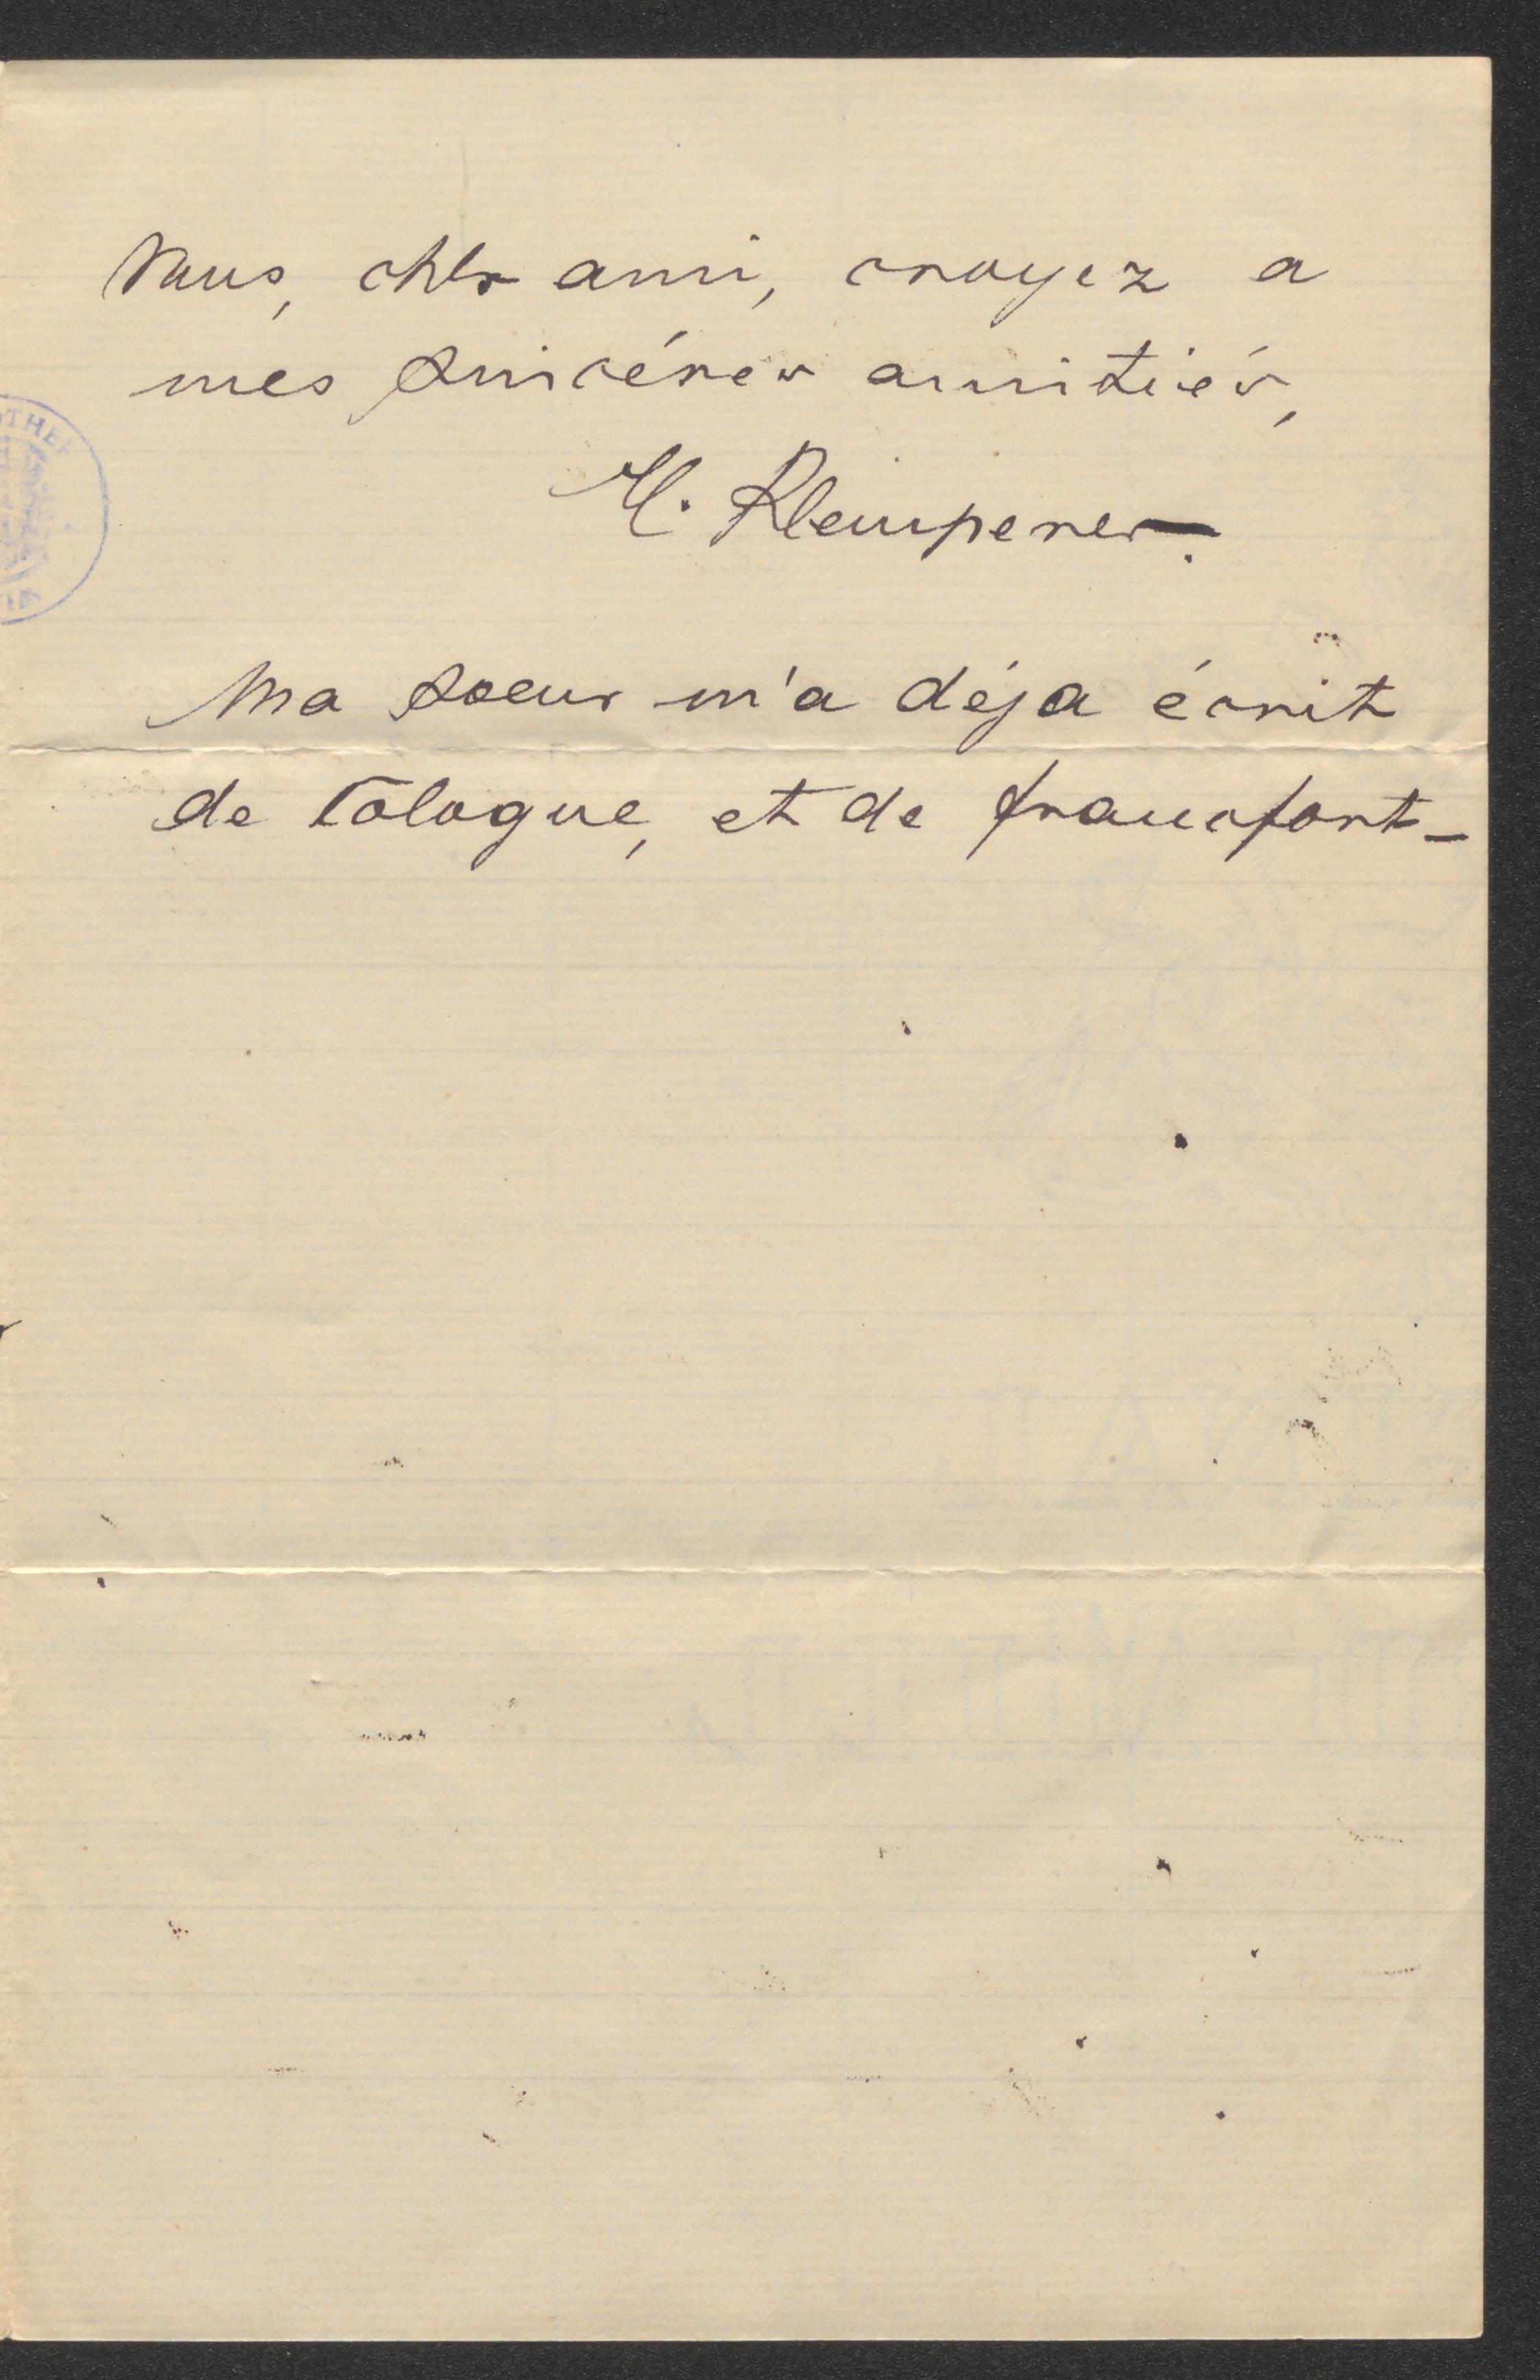 Vous, cher ami, croyez a
mes sincéres amitiés,
M. Klemperer.
Ma soeur m'a déja écrit
de Cologne, et de francfort_